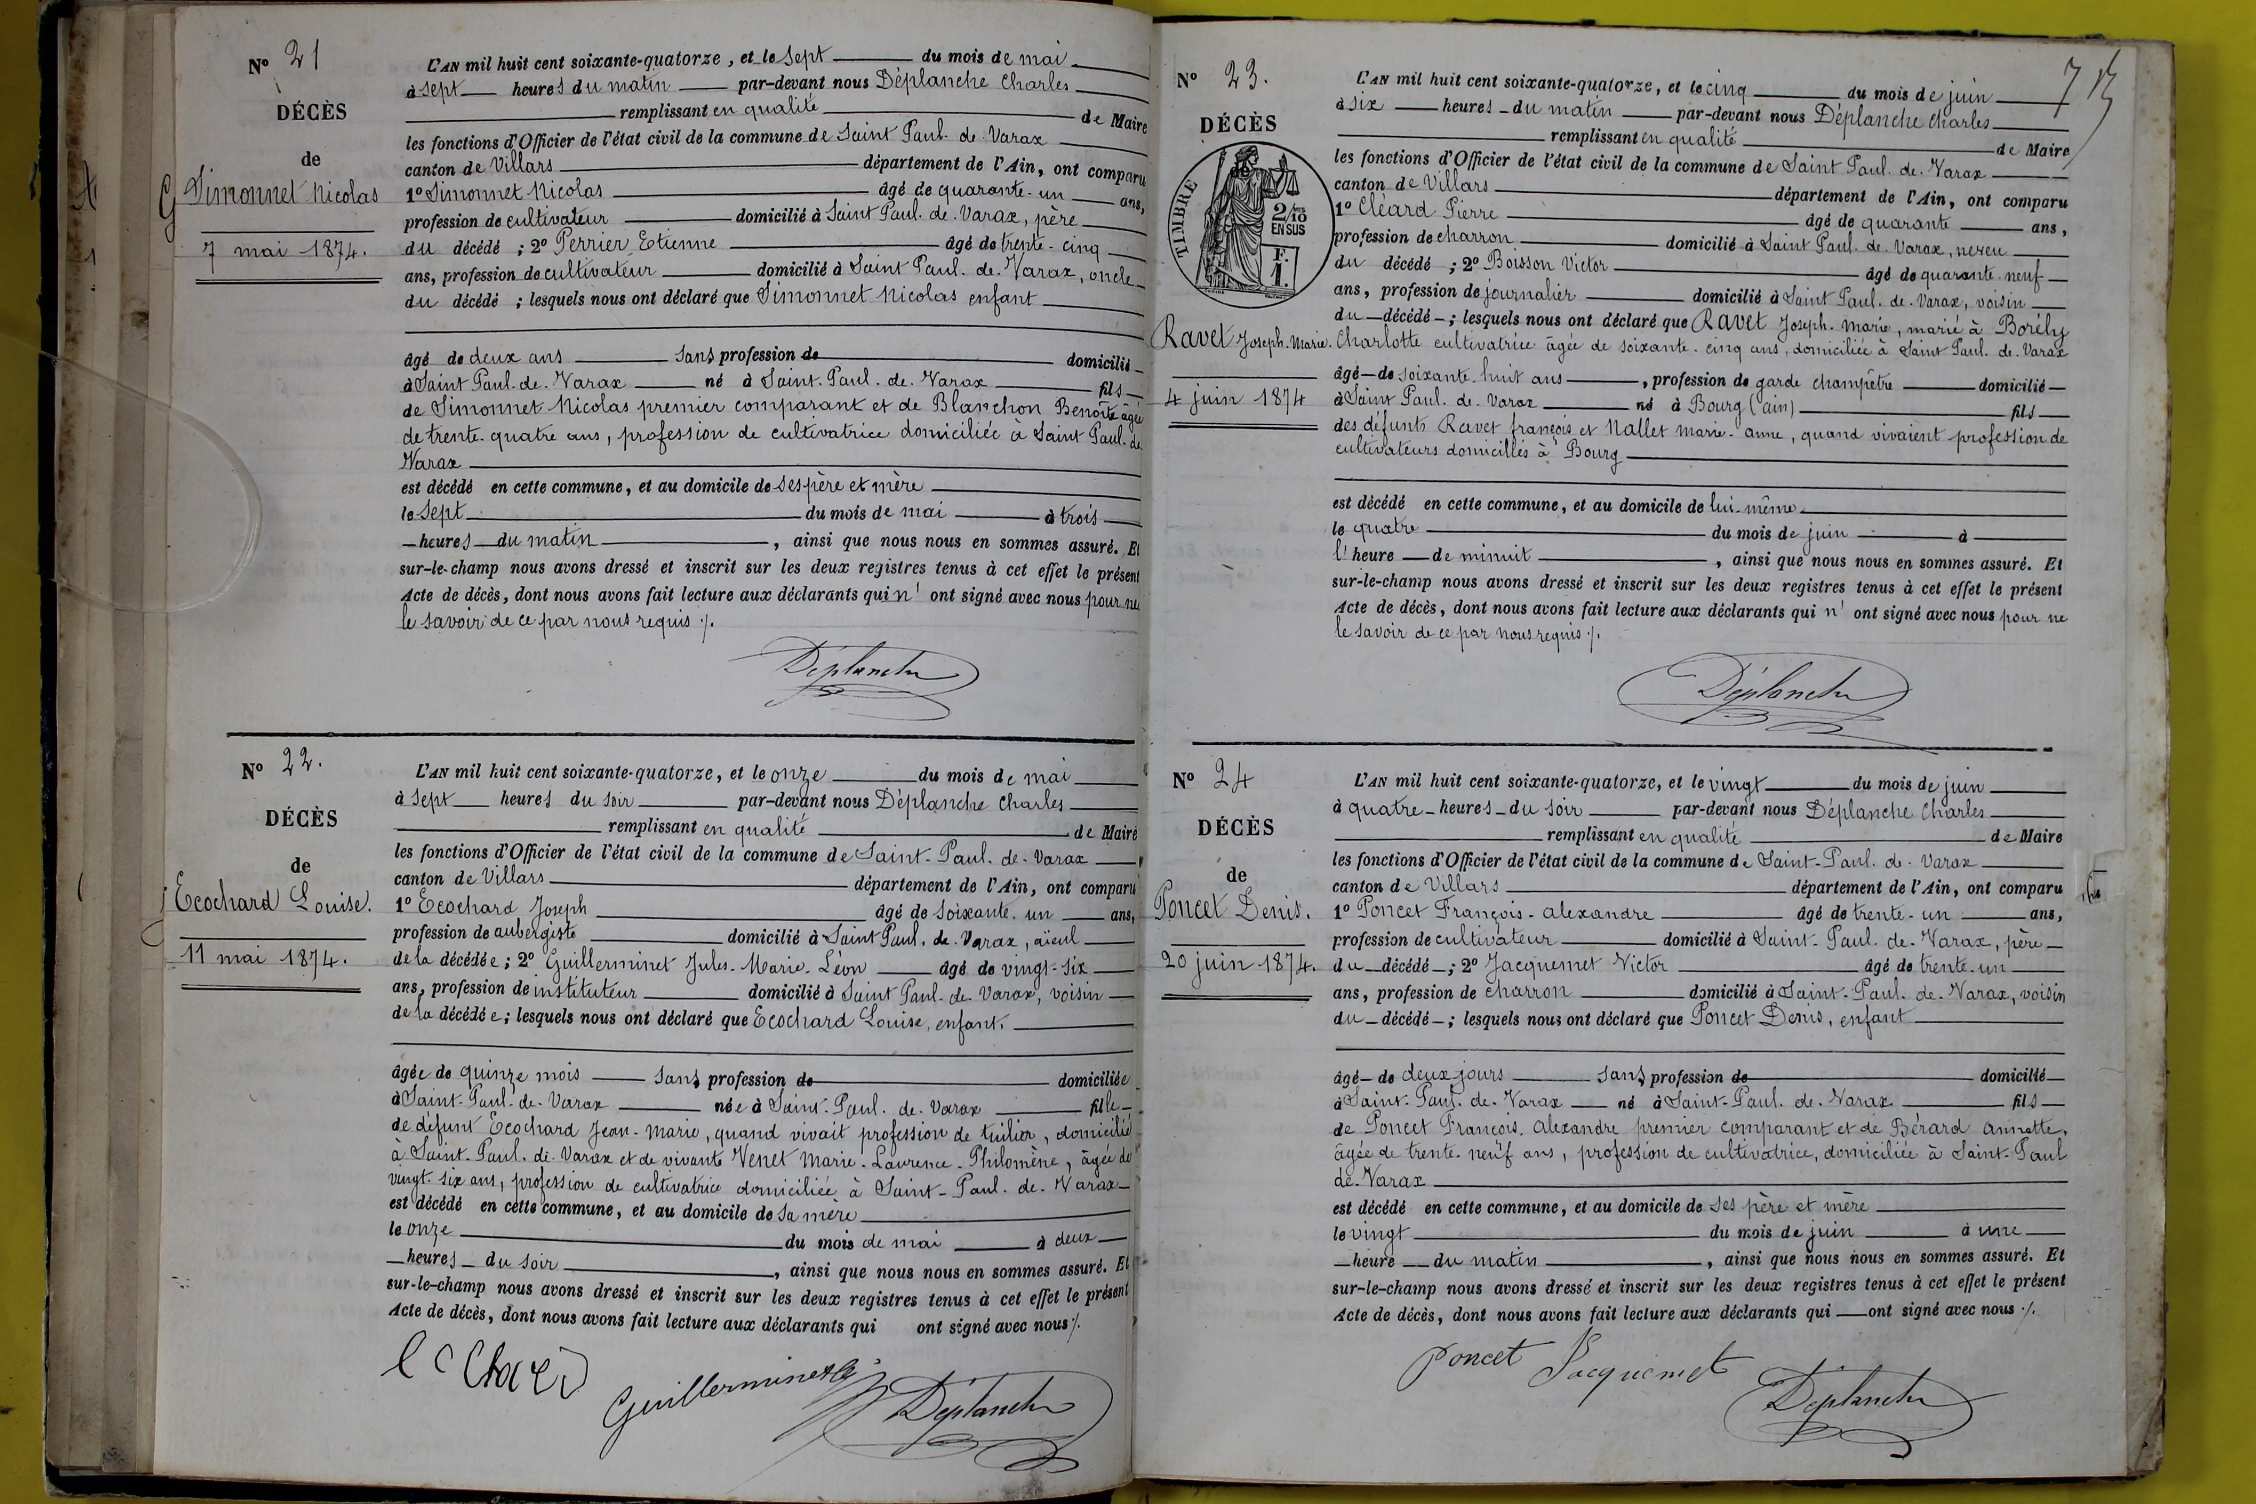 Nº 21
DÉCÈS
de
Simonnet Nicolas
7 mai 1874.
L'AN mil huit cent soixante-quatorze, et le sept du mois de mai
à sept heures du matin par-devant nous Déplanche Charles
remplissant en qualité de Maire
les fonctions d'Officier de l'état civil de la commune de Saint Paul. de. Varax
canton de Villars département de l'Ain, ont comparu
1º Simonnet Nicolas âgé de quarante-un ans,
profession de cultivateur domicilié à Saint Paul. de. Varax, père
du décédé ; 2º Perrier Etienne âgé de trente-cinq
ans, profession de cultivateur domicilié à Saint Paul. de. Varax, oncle
du décédé ; lesquels nous ont déclaré que Simonnet Nicolas enfant
âgé de deux ans sans profession de domicilié
à Saint Paul. de. Varax né à Saint. Paul. de. Varax fils
de Simonnet Nicolas premier comparant et de Blanchon Benoîte âgée
de trente-quatre ans, profession de cultivatrice domiciliée à Saint Paul. de.
Varax
est décédé en cette commune, et au domicile de ses père et mère
le sept du mois de mai à trois
heures du matin, ainsi que nous nous en sommes assuré. Et
sur-le-champ nous avons dressé et inscrit sur les deux registres tenus à cet effet le présent
Acte de décès, dont nous avons fait lecture aux déclarants qui n' ont signé avec nous pour ne
le savoir de ce par nous requis ./.
Déplanche
Nº 22.
DÉCÈS
de
Ecochard Louise.
11 mai 1874.
L'AN mil huit cent soixante-quatorze, et le onze du mois de mai
à sept heures du soir par-devant nous Déplanche Charles
remplissant en qualité de Maire
les fonctions d'Officier de l'état civil de la commune de Saint-Paul. de. Varax
canton de Villars département de l'Ain, ont comparu
1º Ecochard Joseph âgé de soixante-un ans,
profession de aubergiste domicilié à Saint Paul. de. Varax, aïeul
de la décédée ; 2º Guillerminet Jules-Marie-Léon âgé de vingt-six
ans, profession de instituteur domicilié à Saint Paul. de. Varax, voisin
de la décédée ; lesquels nous ont déclaré que Ecochard Louise, enfant,
âgée de quinze mois sans profession de domiciliée
à Saint-Paul. de. Varax née à Saint. Paul. de. Varax fille
de défunt Ecochard Jean-Marie, quand vivait profession de tuilier, domicilié
à Saint. Paul. de. Varax et de vivante Venet Marie-Laurence-Philomène, âgée de
vingt-six ans, profession de cultivatrice domiciliée à Saint-Paul. de. Varax
est décédé en cette commune, et au domicile de sa mère
le onze du mois de mai à deux
heures du soir, ainsi que nous nous en sommes assuré. Et
sur-le-champ nous avons dressé et inscrit sur les deux registres tenus à cet effet le présent
Acte de décès, dont nous avons fait lecture aux déclarants qui ont signé avec nous ./.
Guillerminet
Déplanche
Nº 23.
DÉCÈS
TIMBRE
2/10
EN SUS
F.
1.
Ravet Joseph-Marie.
4 juin 1874
L'AN mil huit cent soixante-quatorze, et le cinq du mois de juin
à six heures du matin par-devant nous Déplanche Charles
remplissant en qualité de Maire
les fonctions d'Officier de l'état civil de la commune de Saint Paul. de. Varax
canton de Villars département de l'Ain, ont comparu
1º Cléard Pierre âgé de quarante ans,
profession de charron domicilié à Saint Paul. de. Varax, neveu
du décédé ; 2º Boisson Victor âgé de quarante-neuf
ans, profession de journalier domicilié à Saint Paul. de. Varax, voisin
du décédé ; lesquels nous ont déclaré que Ravet Joseph-Marie, marié à Borély
Charlotte cultivatrice âgée de soixante-cinq ans, domiciliée à Saint Paul. de. Varax
âgé de soixante-huit ans, profession de garde champêtre domicilié
à Saint Paul. de. Varax né à Bourg (ain) fils
des défunts Ravet françois et Nallet Marie-Anne, quand vivaient profession de
cultivateurs domiciliés à Bourg
est décédé en cette commune, et au domicile de lui-même
le quatre du mois de juin à
l'heure de minuit, ainsi que nous nous en sommes assuré. Et
sur-le-champ nous avons dressé et inscrit sur les deux registres tenus à cet effet le présent
Acte de décès, dont nous avons fait lecture aux déclarants qui n' ont signé avec nous pour ne
le savoir de ce par nous requis ./.
Déplanche
Nº 24
DÉCÈS
de
Poncet Denis.
20 juin 1874.
L'AN mil huit cent soixante-quatorze, et le vingt du mois de juin
à quatre heures du soir par-devant nous Déplanche Charles
remplissant en qualité de Maire
les fonctions d'Officier de l'état civil de la commune de Saint-Paul. de. Varax
canton de Villars département de l'Ain, ont comparu
1º Poncet François-Alexandre âgé de trente-un ans,
profession de cultivateur domicilié à Saint-Paul. de. Varax, père
du décédé ; 2º Jacquemet Victor âgé de trente-un
ans, profession de charron domicilié à Saint-Paul. de. Varax, voisin
du décédé ; lesquels nous ont déclaré que Poncet Denis, enfant
âgé de deux jours sans profession de domicilié
à Saint-Paul. de. Varax né à Saint-Paul. de. Varax fils
de Poncet François. Alexandre premier comparant et de Bérard Annette,
âgée de trente-neuf ans, profession de cultivatrice, domiciliée à Saint-Paul
de. Varax
est décédé en cette commune, et au domicile de ses père et mère
le vingt du mois de juin à une
heure du matin, ainsi que nous nous en sommes assuré. Et
sur-le-champ nous avons dressé et inscrit sur les deux registres tenus à cet effet le présent
Acte de décès, dont nous avons fait lecture aux déclarants qui ont signé avec nous ./.
Poncet Jacquemet
Déplanche